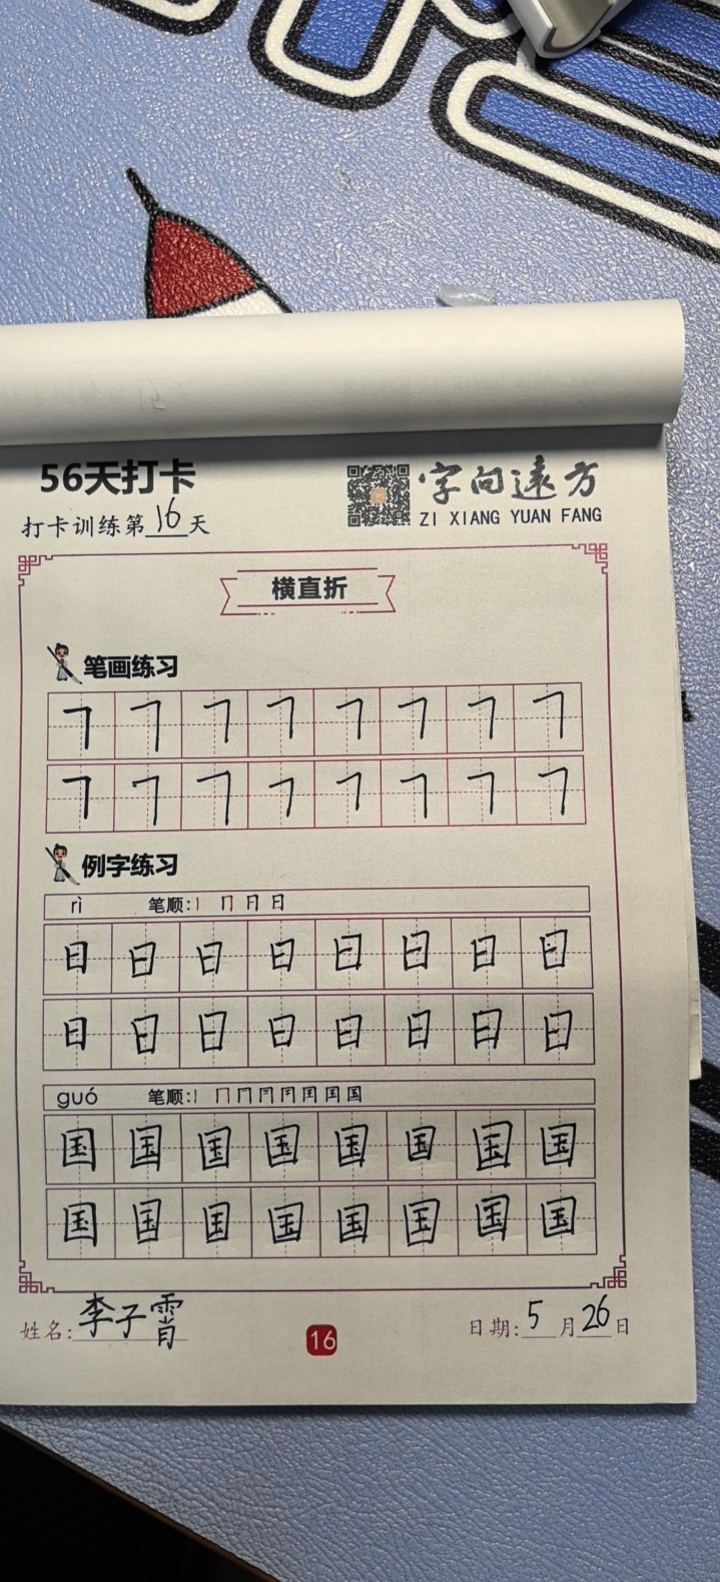 56天打卡
字向远方
ZI XIANG YUAN FANG
打卡训练第16天
横直折
笔画练习
㇕ ㇕ ㇕ ㇕ ㇕ ㇕ ㇕ ㇕
㇕ ㇕ ㇕ ㇕ ㇕ ㇕ ㇕ ㇕
例字练习
rì 笔顺: 丨 冂 日 日
日 日 日 日 日 日 日 日
日 日 日 日 日 日 日 日
guó 笔顺: 丨 冂 冂 冃 用 国 国 国
国 国 国 国 国 国 国 国
国 国 国 国 国 国 国 国
姓名: 李子霄
16
日期: 5月26日